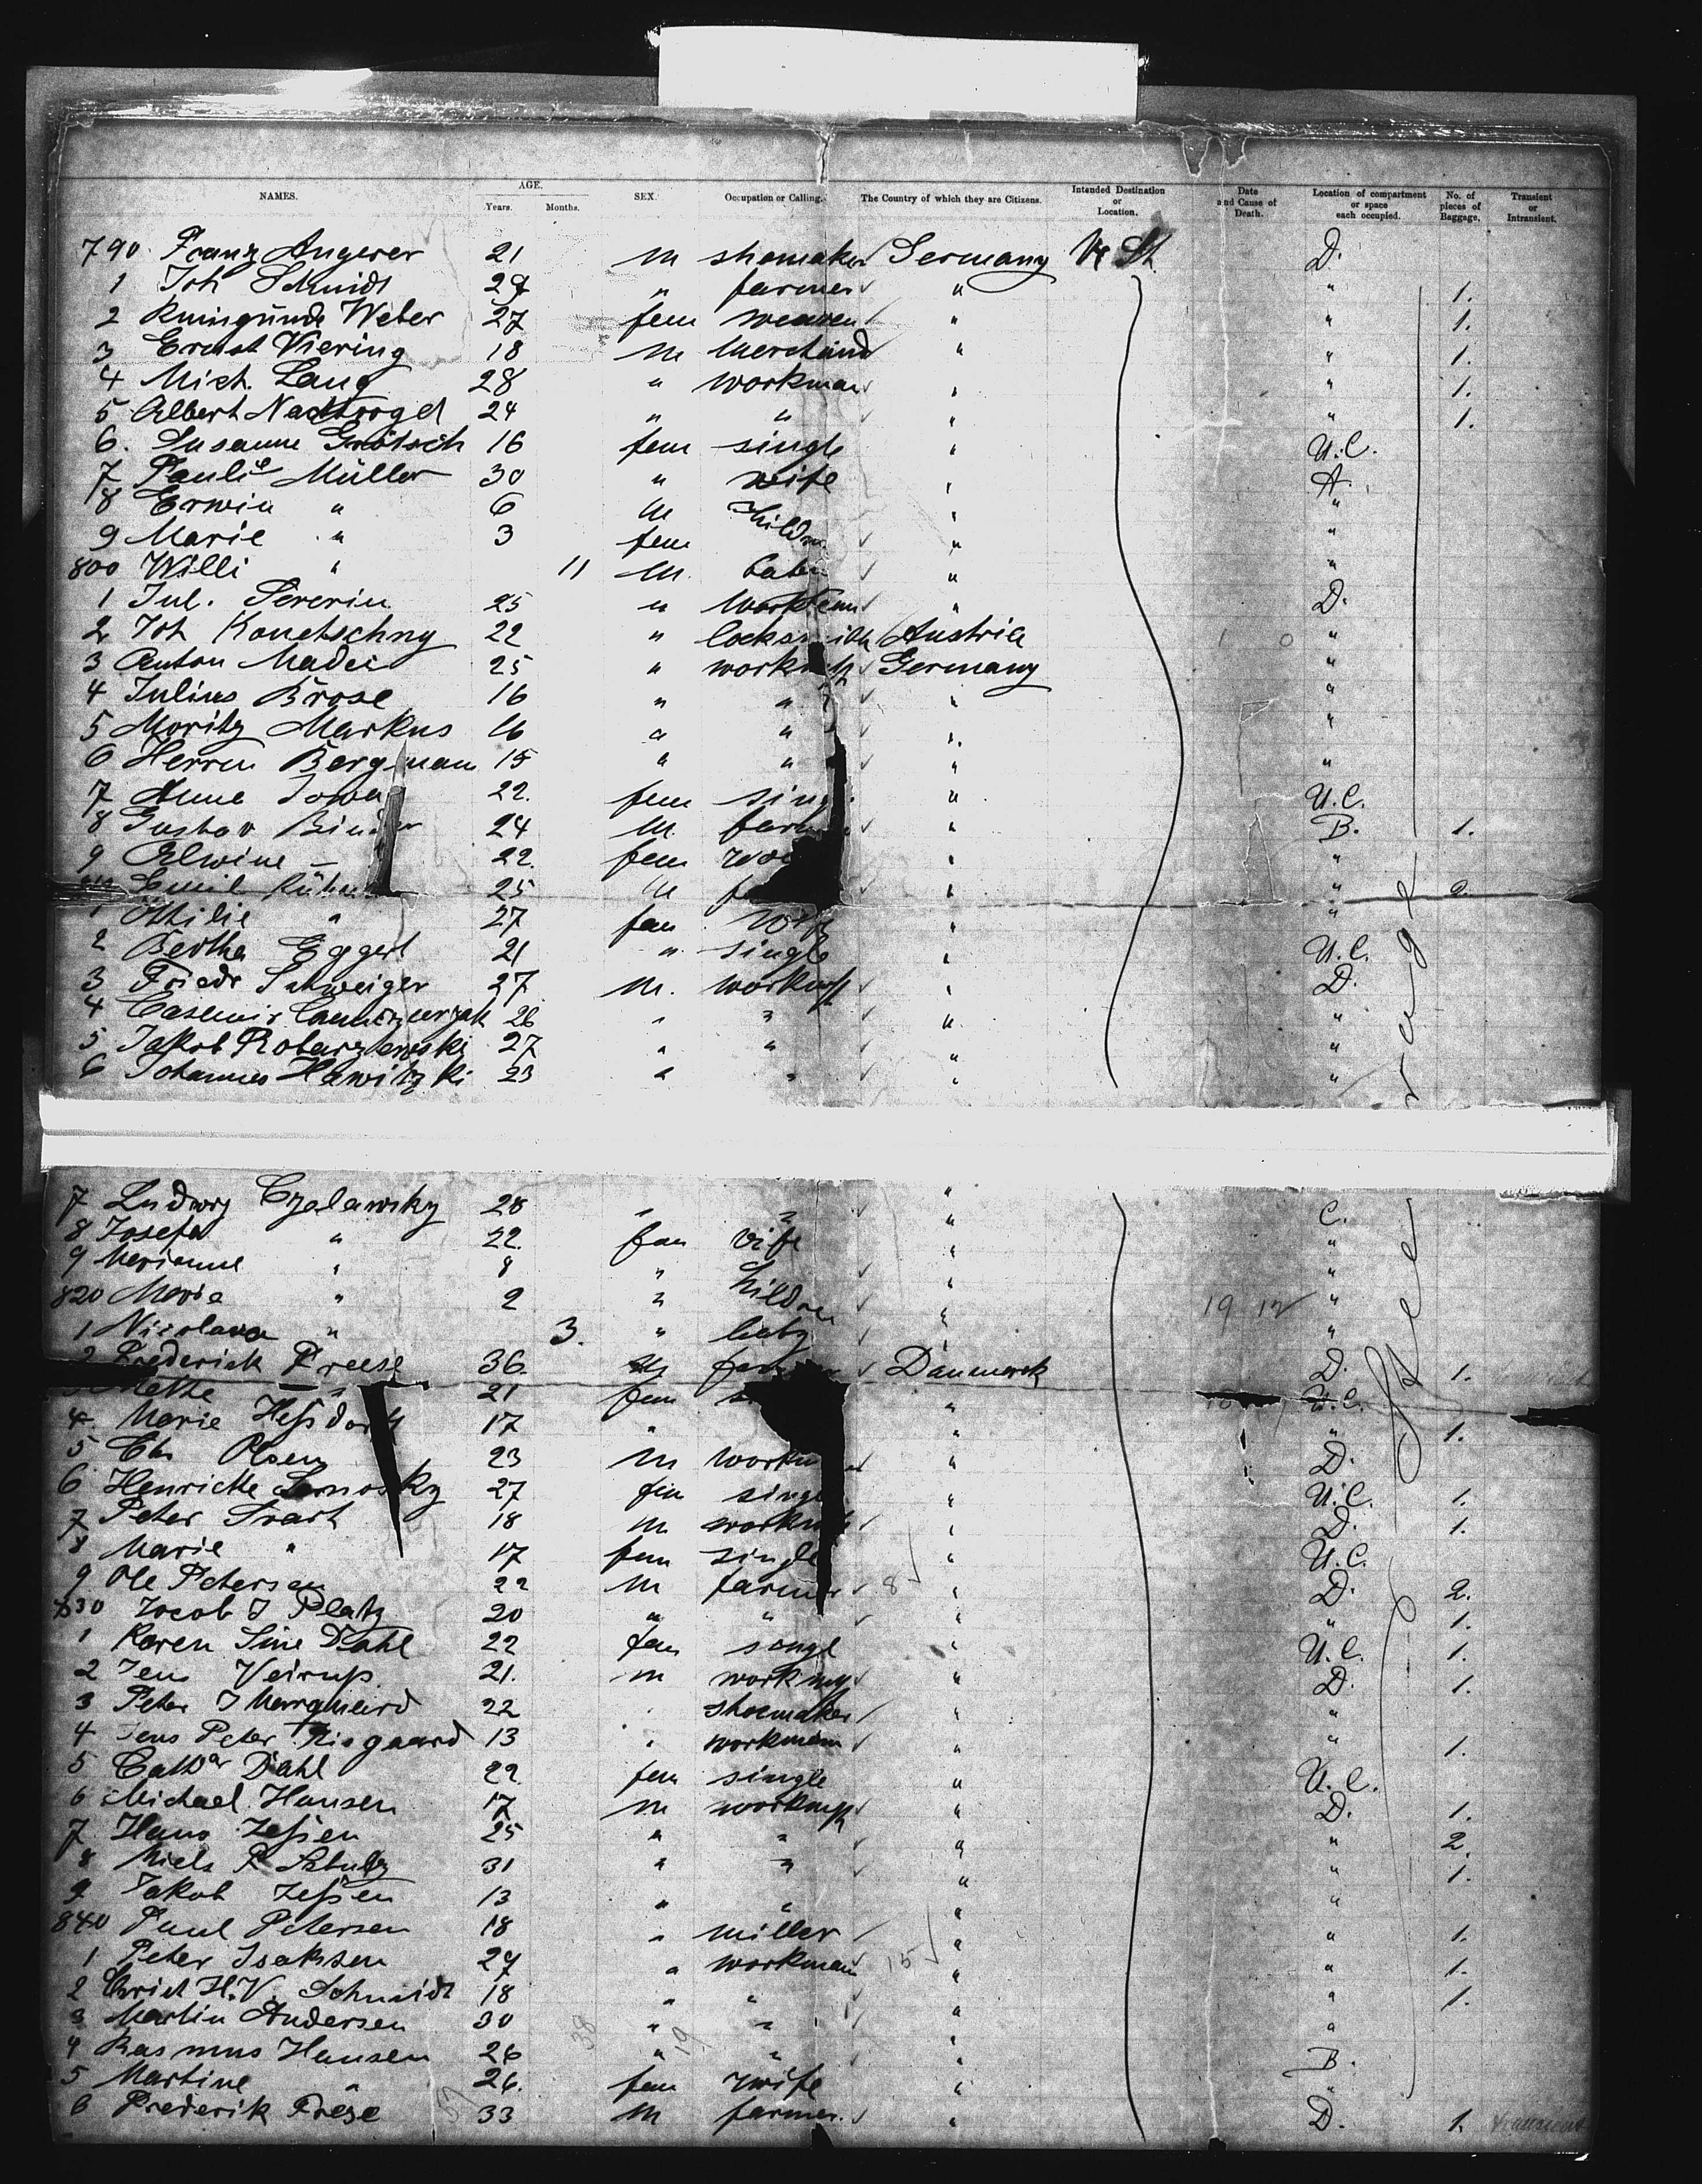 NAMES. AGE. Years. Months. SEX. Occupation or Calling. The Country of which they are Citizens. Intended Destination or Location. Date and Cause of Death. Location of compartment or space each occupied. No. of pieces of Baggage. Transient or Intransient.
790 Franz Angerer 21 m shomaker Germany U. St. D.
1 Joh Schmidt 29 " farmer " " 1.
2 Kunigunde Weber 27 fem weaven " " 1.
3 Ernst Viering 18 m Merchand " " 1.
4 Mich. Lang 28 " workman " " 1.
5 Albert Nachtvogel 24 " " " " 1.
6. Susanne 16 fem single " U.C.
7 Paulie Müller 30 " wife " A.
8 Erwin " 6 m Childr " "
9 Marie " 3 fem " "
800 Willi " 11 m. baby " "
1 Jul. Severin 25 " Workman " D.
2 Joh Konetschny 22 " locksmith Austria "
3 Anton Madei 25 " workm Germany "
4 Julius Brose 16 " " " "
5 Moritz Markus 16 " " " "
6 Herrm Bergmann 15 " " " "
7 Anne 22. fem sing " U.C.
8 Gustav Binder 24 m. farm " B. 1.
9 Alwine – 22. fem " "
Emil 25 m f " " 2.
1 Ottilie " 27 fem wife " "
2 Bertha Eggert 21 " single " U.C.
3 Friedr Schweiger 27 m. workm " D.
4 Casemir 26 " " " "
5 Jakob 27 " " " "
6 Johannes Hawitzki 23 " " " "
7 Ludwig Czalawsky 28 " " " C.
8 Josefa " 22. fem wife " "
9 Marianne " 8 " " "
820 Marie " 2 " Childr " 19 12 "
1 Nicolava " 3. " baby " "
2 Frederick Freese 36. m far Danmark D. 1.
3 Mette " 21 fem s " U.C.
4 Marie Hessdorf 17 " " " 1.
5 Chr Olsen 23 m workm " D.
6 Henriette 27 fem singl " U.C. 1.
7 Peter Svart 18 m workm " D. 1.
8 Marie " 17 fem single " U.C.
9 Ole Petersen 22 m farmer 8 " D. 2.
830 Jacob J Platz 20 " " " " 1.
1 Karen Sine Dahl 22 fem singl " U.C. 1.
2 Jens Veirup. 21. m workm " D. 1.
3 Peter J Marquard 22 " shoemaker " "
4 Jens Peter Risgaard 13 " workman " " 1.
5 Cathar Dahl 22. fem single " U.C.
6 Michael Hansen 17 m workm " D. 1.
7 Hans Jessen 25 " " " " 2.
8 Niels P Schulz 31 " " " " 1.
9 Jakob Jessen 13 " " " "
840 Paul Petersen 18 " miller " " 1.
1 Peter Isaksen 27 " workman 15 " " 1.
2 Christ H.V. Schmidt 18 " " " " 1.
3 Martin Andersen 30 " " " "
4 Rasmus Hansen 26 38 " 19 " " B.
5 Martine " 26. fem wife " "
6 Frederik Frese 33 m farmer. " D. 1. transient
Steerage